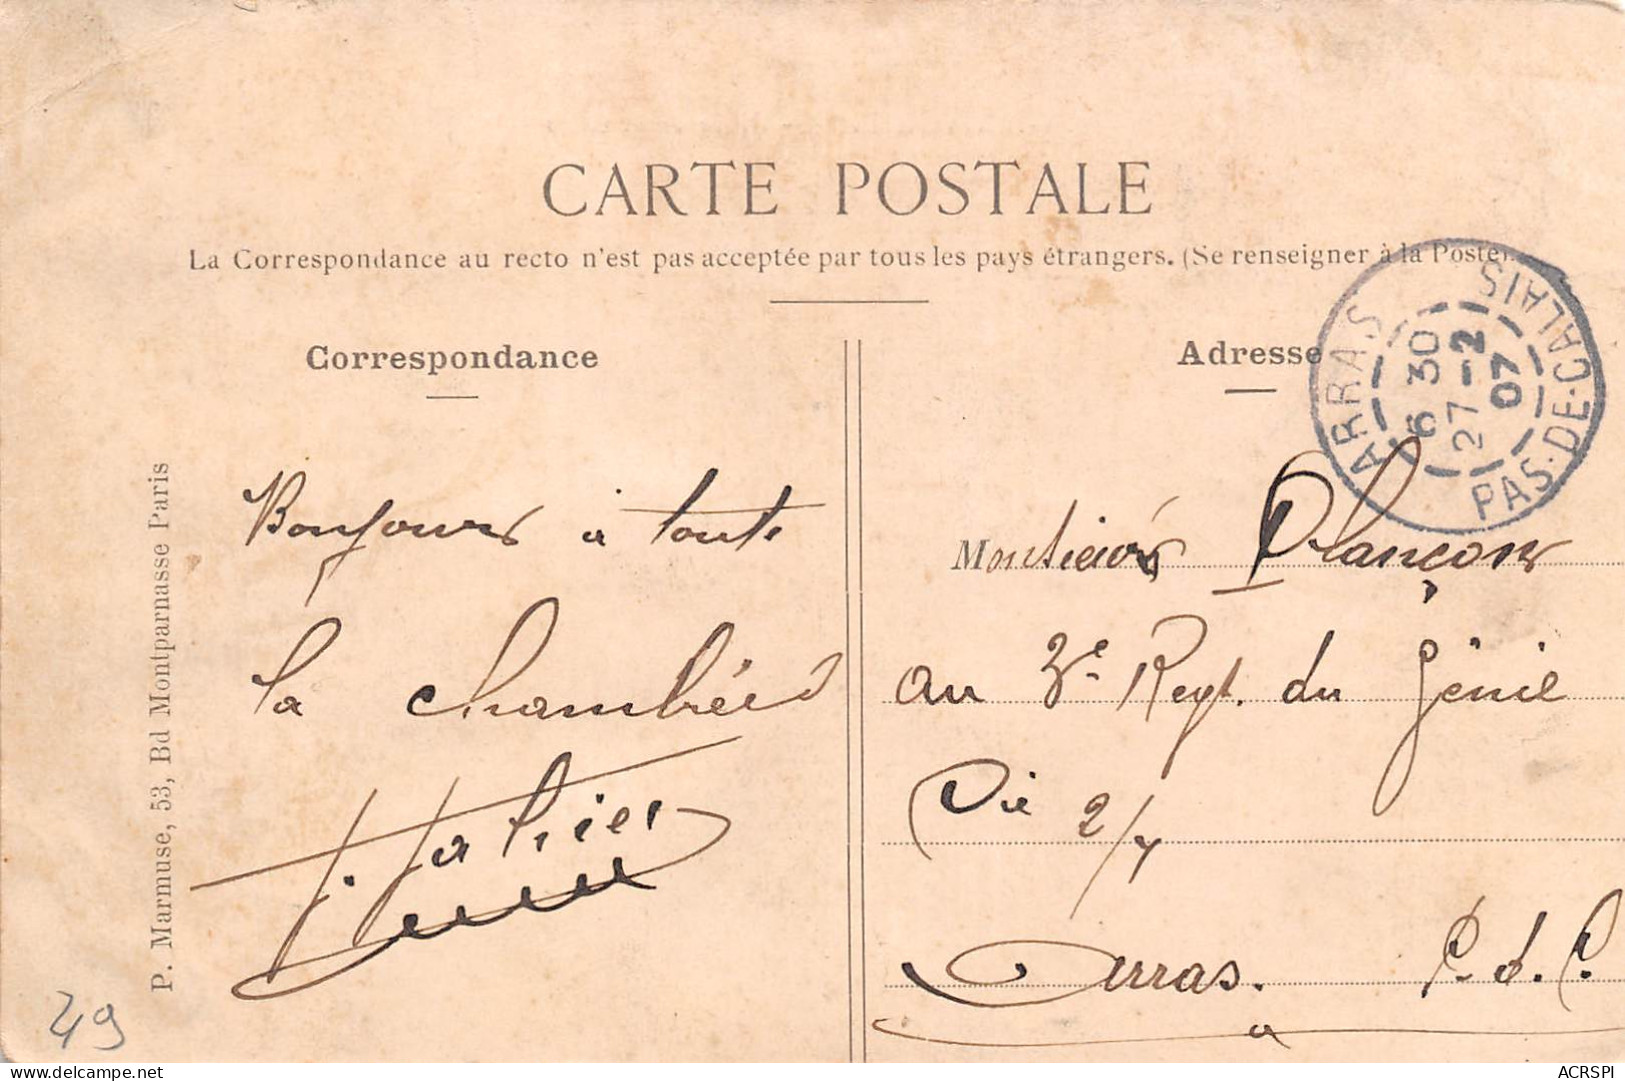 CARTE POSTALE
La Correspondance au recto n'est pas acceptée par tous les pays étrangers. (Se renseigner à la Poste).
Correspondance
Bonjour à toute
la chambrée
P. Marmuse, 53, Bd Montparnasse Paris
49
Adresse
ARRAS
6 30
27-2
07
PAS-DE-CALAIS
Monsieur Plançon
au 3e Regt. du Génie
Cie 2/7
Arras. P. d. C.
delcampe.net
ACRSPI